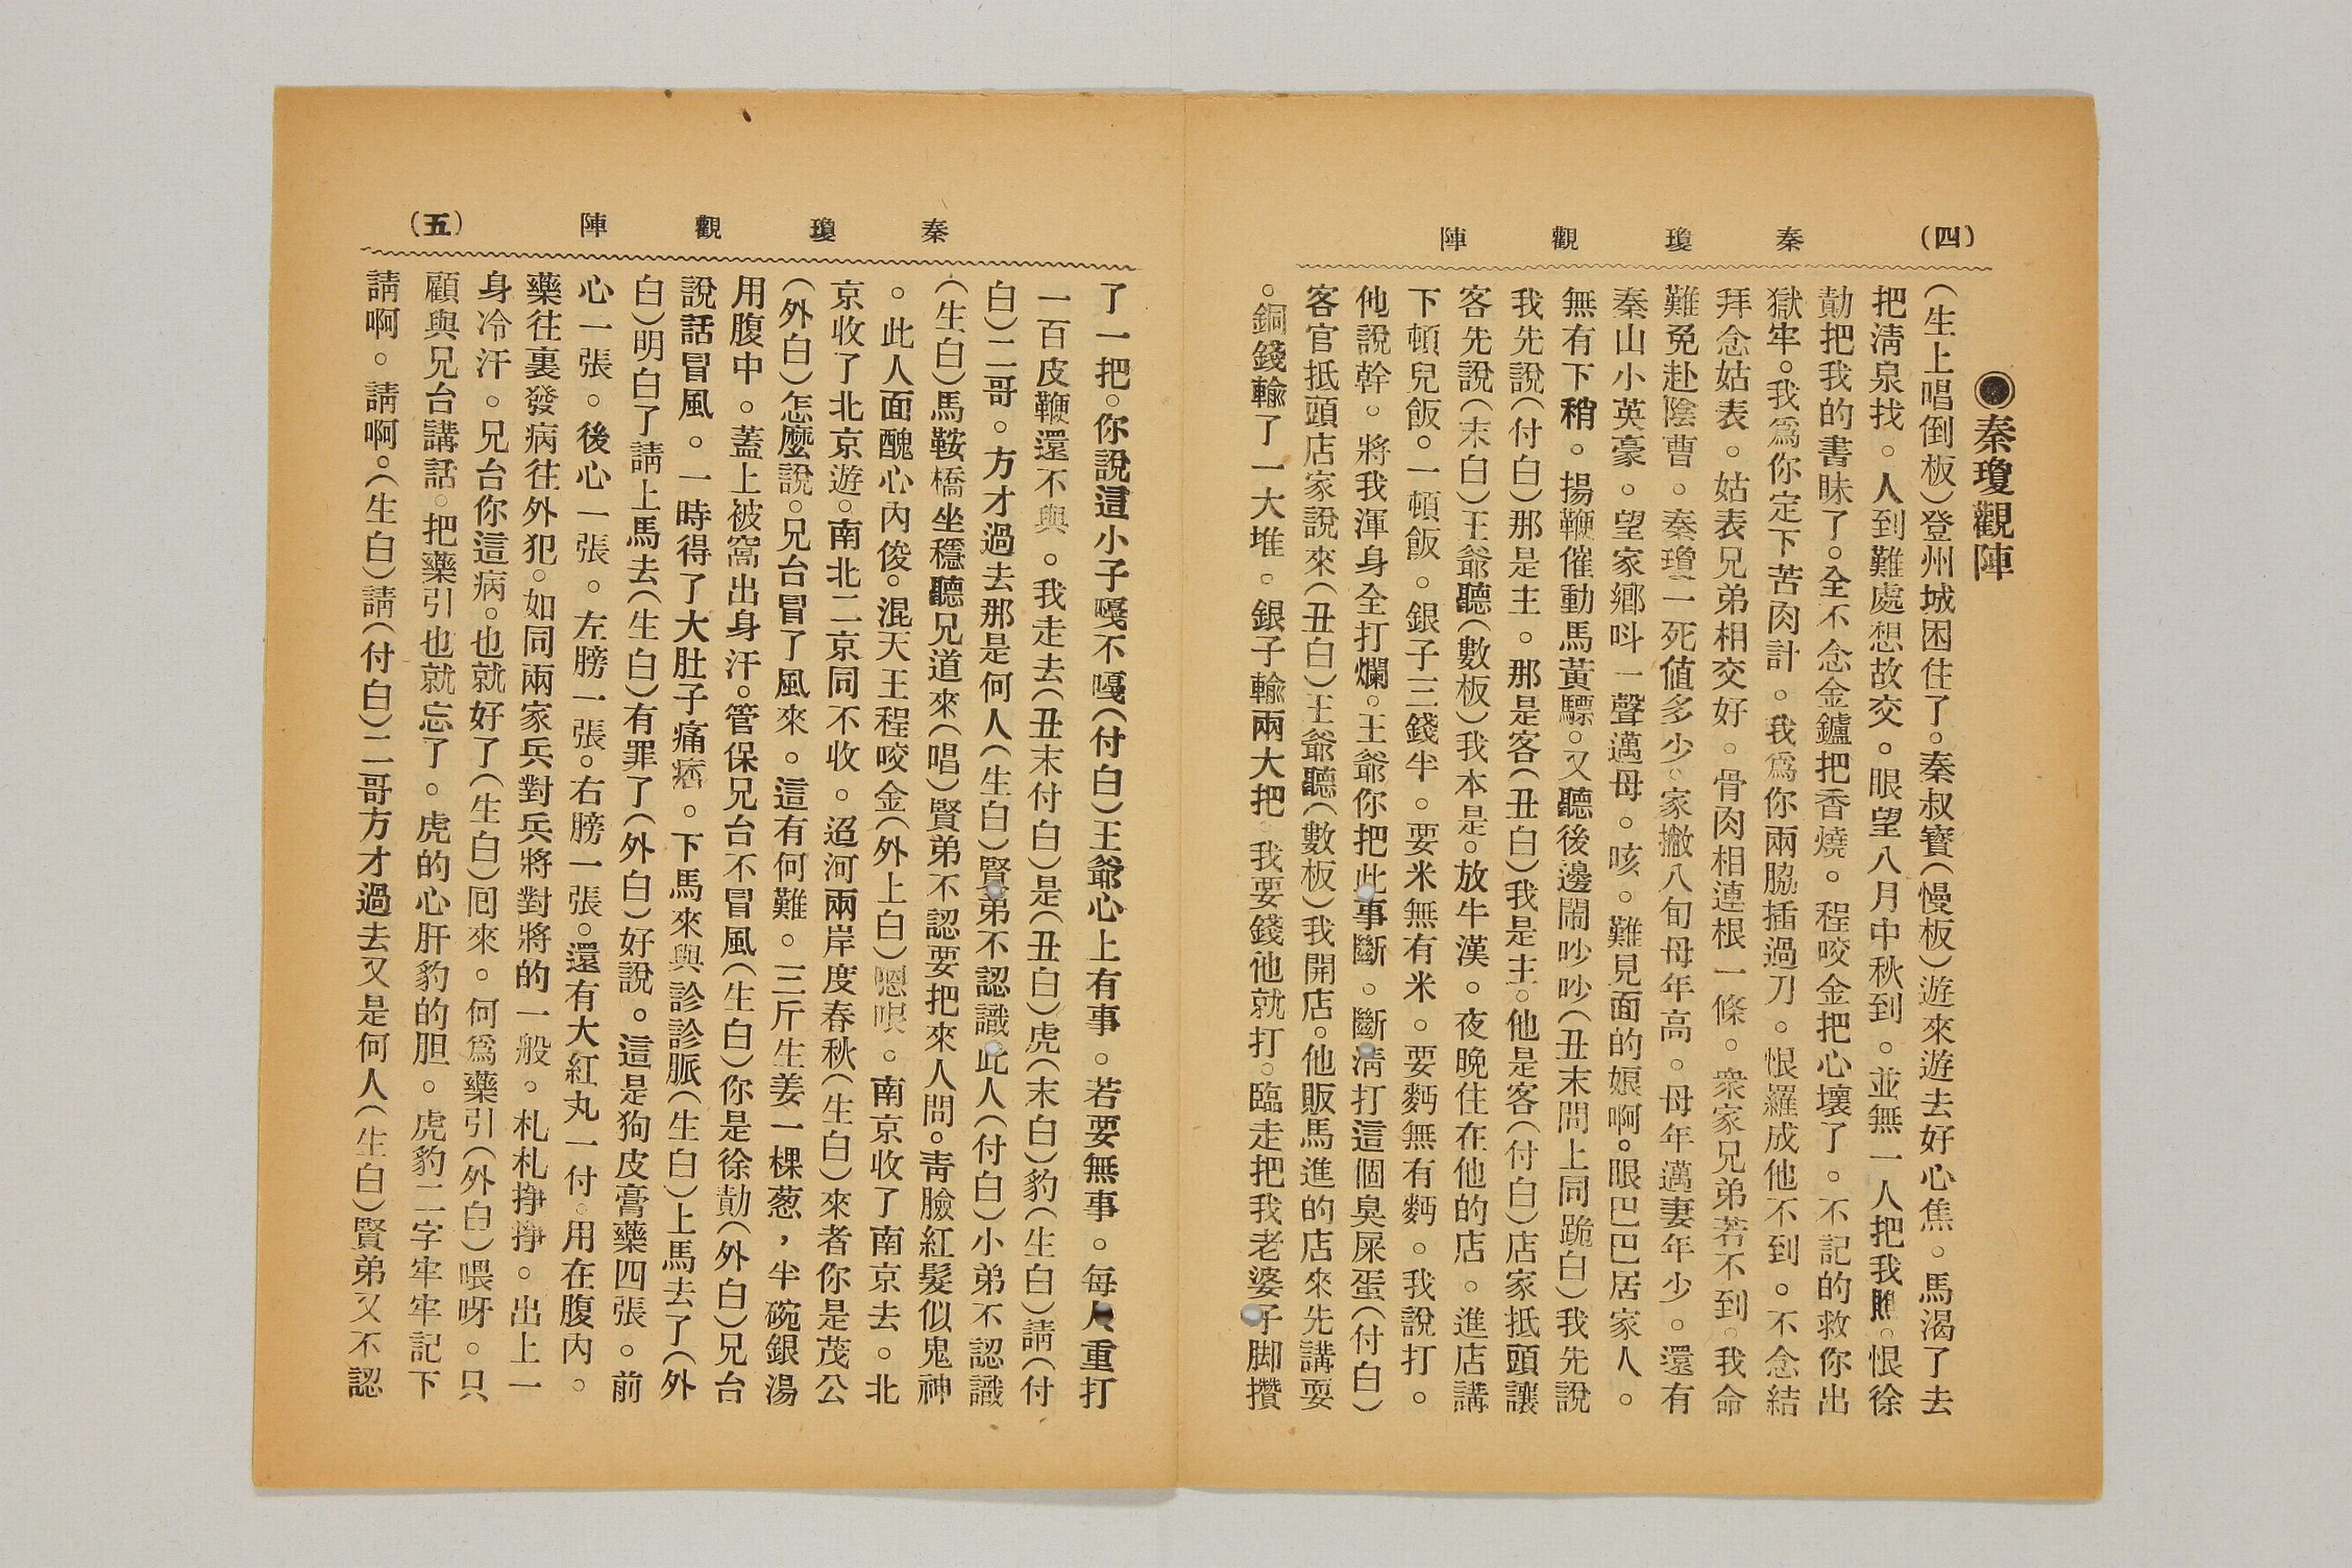 (四) 秦瓊觀陣
◉秦瓊觀陣
(生上唱倒板)登州城困住了。秦叔寶(慢板)遊來遊去好心焦。馬渴了去
把清泉找。人到難處想故交。眼望八月中秋到。並無一人把我瞧。恨徐
勣把我的書昧了。全不念金鑪把香燒。程咬金把心壞了。不記的救你出
獄牢。我爲你定下苦肉計。我爲你兩脇插過刀。恨羅成他不到。不念結
拜念姑表。姑表兄弟相交好。骨肉相連根一條。衆家兄弟若不到。我命
難免赴陰曹。秦瓊一死値多少。家撇八旬母年高。母年邁妻年少。還有
秦山小英豪。望家鄉呌一聲邁母。咳。難見面的娘啊。眼巴巴居家人。
無有下稍。揚鞭催動馬黃驃。又聽後邊鬧吵吵(丑末問上同跪白)我先說
我先說(付白)那是主。那是客(丑白)我是主。他是客(付白)店家抵頭讓
客先說(末白)王爺聽(數板)我本是。放牛漢。夜晚住在他的店。進店講
下頓兒飯。一頓飯。銀子三錢半。要米無有米。要麪無有麪。我說打。
他說幹。將我渾身全打爛。王爺你把此事斷。斷淸打這個臭屎蛋(付白)
客官抵頭店家說來(丑白)王爺聽(數板)我開店。他販馬進的店來先講耍
。銅錢輸了一大堆。銀子輸兩大把。我要錢他就打。臨走把我老婆子脚攢
秦瓊觀陣 (五)
了一把。你說這小子嘎不嘎(付白)王爺心上有事。若要無事。每人重打
一百皮鞭還不與。我走去(丑末付白)是(丑白)虎(末白)豹(生白)請(付
白)二哥。方才過去那是何人(生白)賢弟不認識。此人(付白)小弟不認識
(生白)馬鞍橋坐穩聽兄道來(唱)賢弟不認要把來人問。靑臉紅髮似鬼神
。此人面醜心內俊。混天王程咬金(外上白)嗯哏。南京收了南京去。北
京收了北京遊。南北二京同不收。迢河兩岸度春秋(生白)來者你是茂公
(外白)怎麼說。兄台冒了風來。這有何難。三斤生姜一棵葱，半碗銀湯
用腹中。蓋上被窩出身汗。管保兄台不冒風(生白)你是徐勣(外白)兄台
說話冒風。一時得了大肚子痛痞。下馬來與診診脈(生白)上馬去了(外
白)明白了請上馬去(生白)有罪了(外白)好說。這是狗皮膏藥四張。前
心一張。後心一張。左膀一張。右膀一張。還有大紅丸一付。用在腹內。
藥往裏發病往外犯。如同兩家兵對兵將對將的一般。札札掙掙。出上一
身冷汗。兄台你這病。也就好了(生白)囘來。何爲藥引(外白)喂呀。只
顧與兄台講話。把藥引也就忘了。虎的心肝豹的胆。虎豹二字牢牢記下
請啊。請啊。(生白)請(付白)二哥方才過去又是何人(生白)賢弟又不認